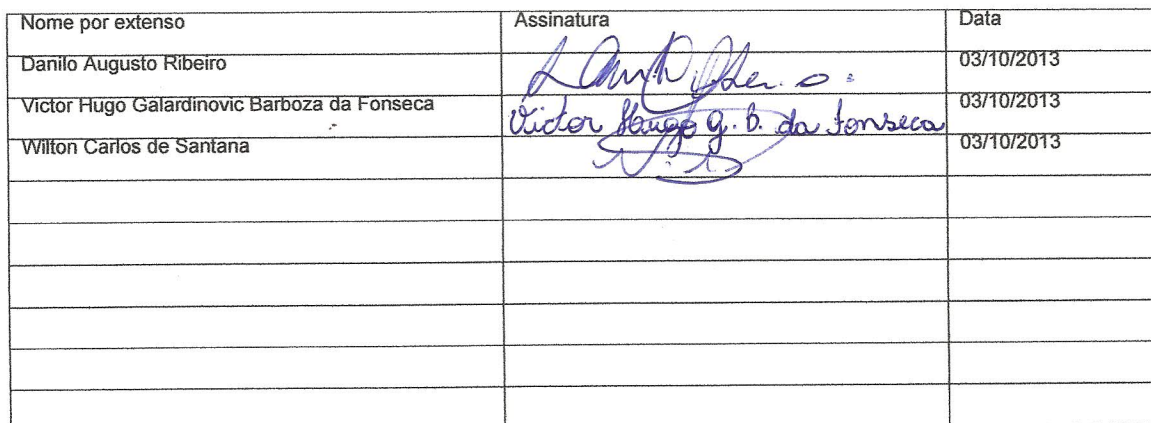 Nome por extenso Assinatura Data
Danilo Augusto Ribeiro 03/10/2013
Victor Hugo Galardinovic Barboza da Fonseca Victor Hugo G. B. da Fonseca 03/10/2013
Wilton Carlos de Santana 03/10/2013